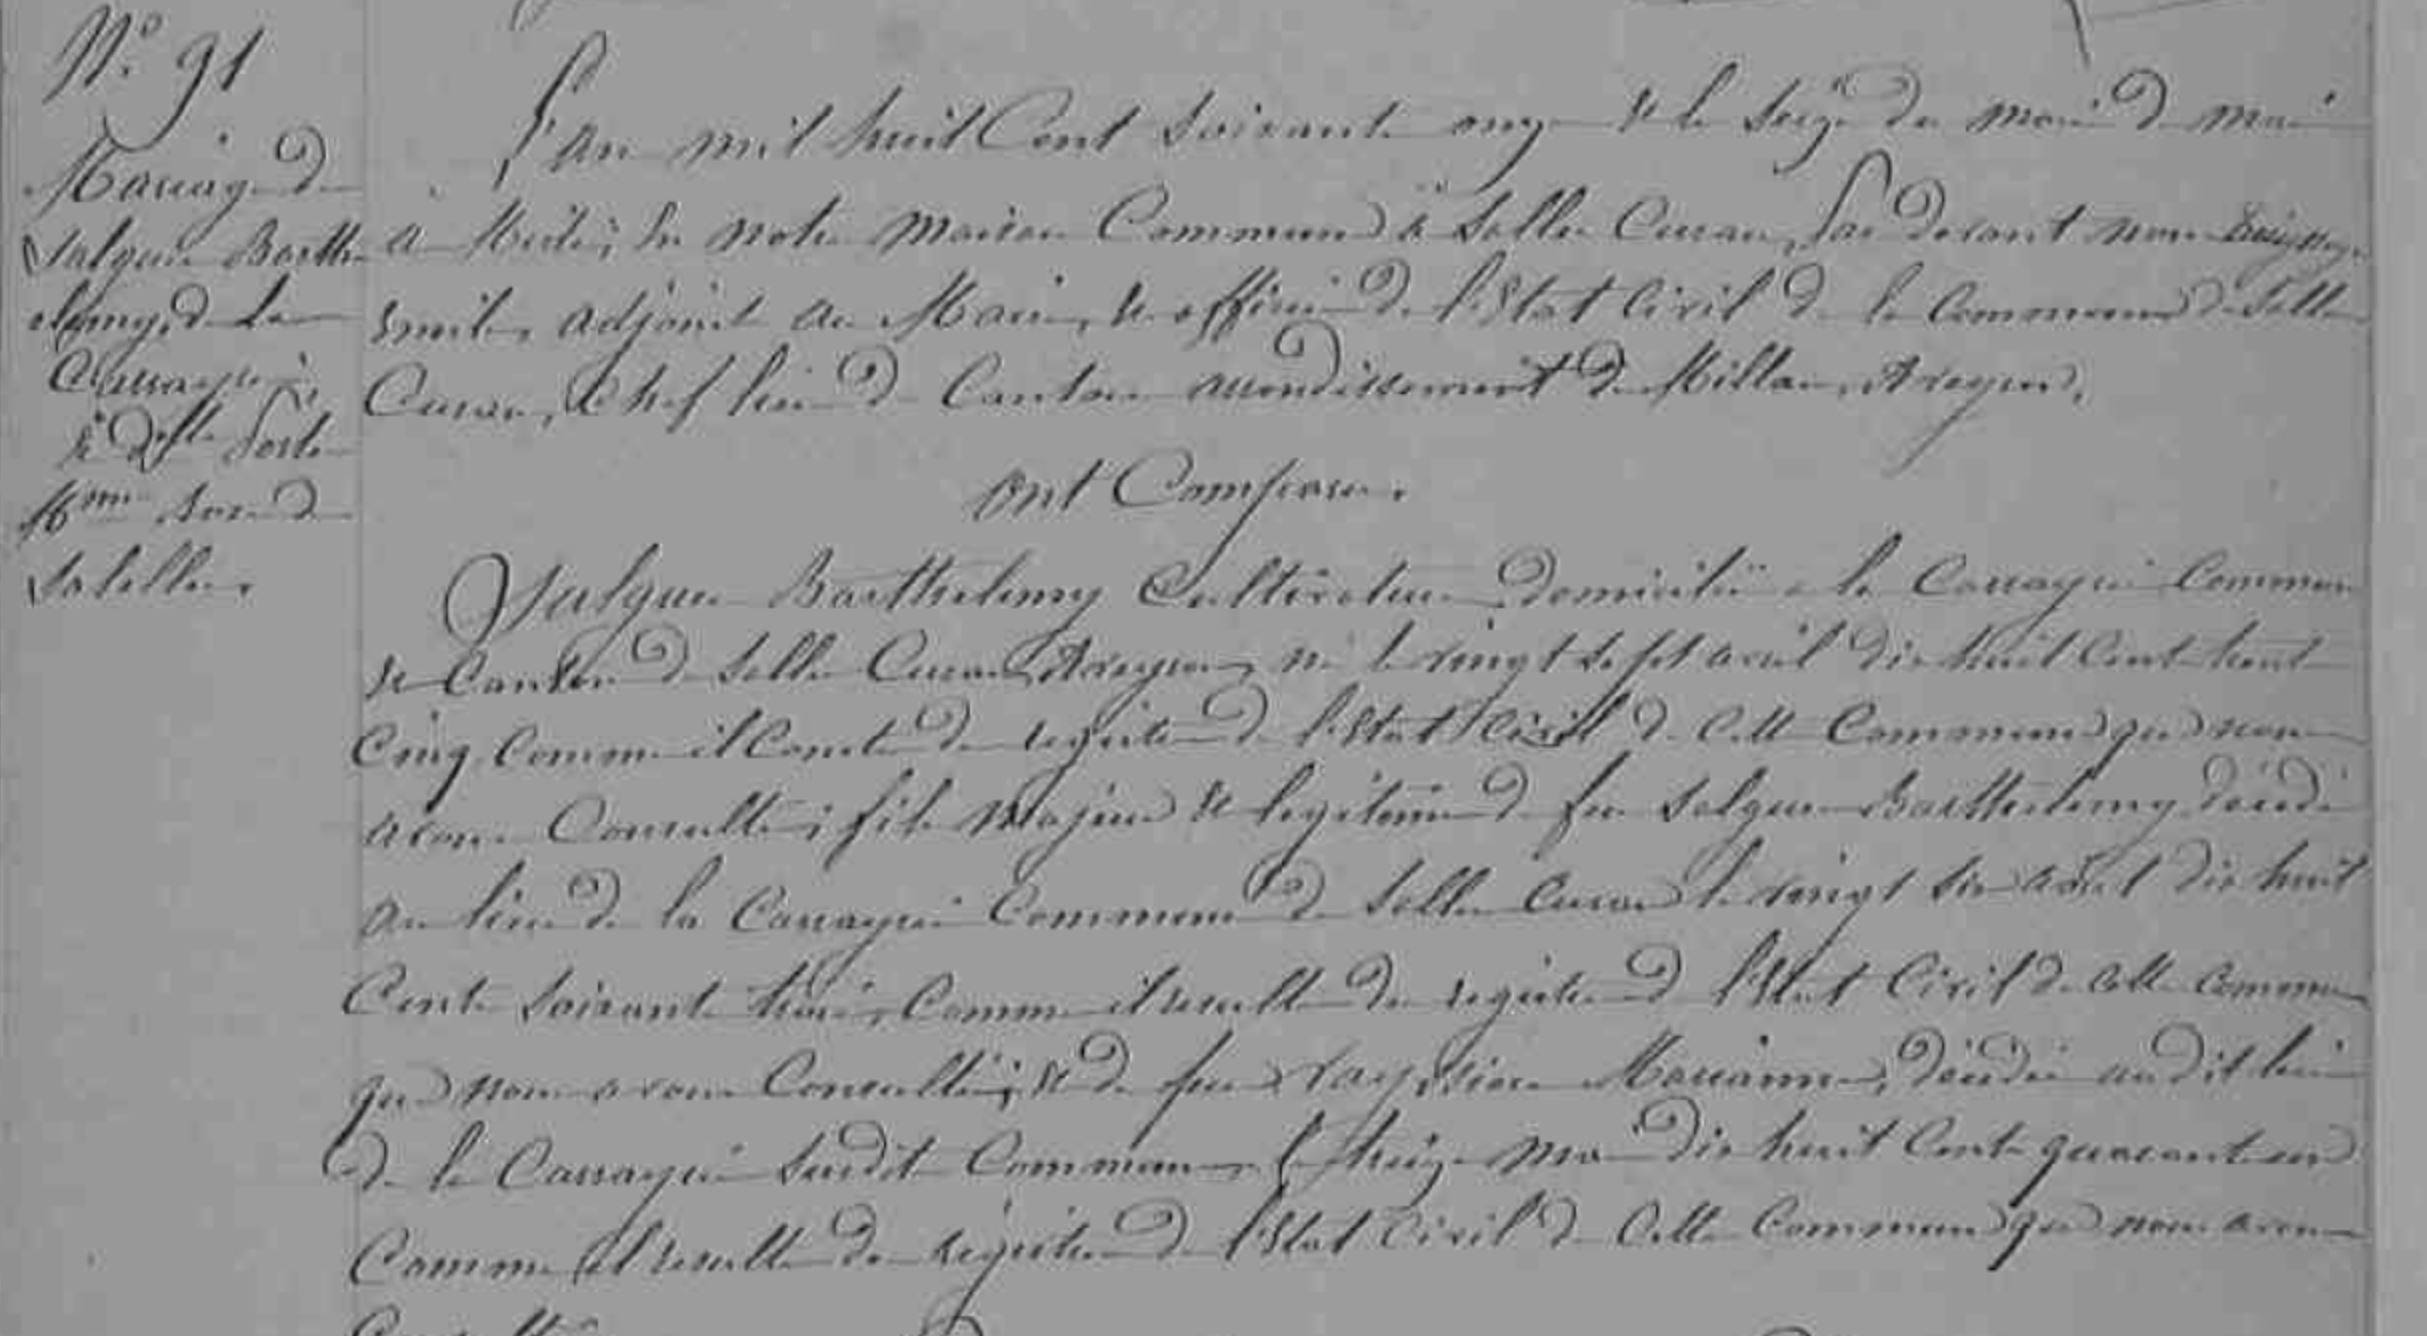 N.º 91
Mariage de
Salgues Barthe
lemy, de la
Carrayrie
et dlle
Mme
L'an mil huit Cent Soixante onze & le Seize du mois de mai
à Midi; En notre Maison Commune à Salles Curan, Par devant nous
Emile, adjoint au Maire, & officier de l'Etat Civil de la Commune de Salles
Curan, Chef lieu de Canton arrondissement de Millau, Aveyron,
Ont Comparu.
Salgues Barthelemy Cultivateur, domicilié à la Carrayrie Commune
& Canton de Salles Curan, Aveyron, né le vingt Sept avril dix huit Cent trente
Cinq Comme il Conste du registre de l'Etat Civil de Cette Commune que nous
avons Consulté; fils Majeur & legitime de feu Salgues Barthelemy décédé
au lieu de la Carrayrie Commune de Salles Curan le vingt Six août dix huit
Cent Soixante trois, Comme il resulte du registre de l'Etat Civil de cette Commune
que nous avons Consulté; & de feue Vayssiere Marianne, décédée audit lieu
de la Carrayrie Susdite Commune, le treize Mai dix huit Cent quarante un
Comme il resulte du registre de l'Etat Civil de Cette Commune que nous avons